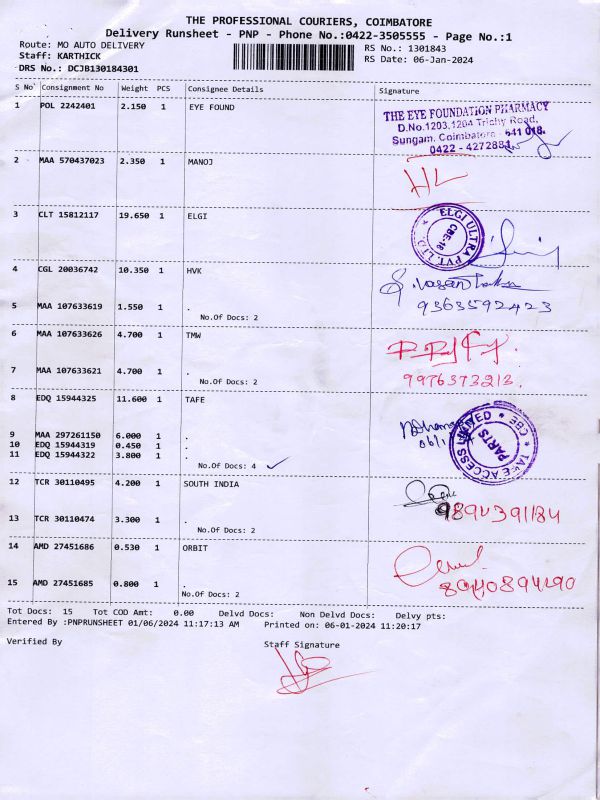 THE PROFESSIONAL COURIERS, COIMBATORE
Delivery Runsheet - PNP - Phone No.:0422-3505555 - Page No.:1
Route: MO AUTO DELIVERY RS No.: 1301843
Staff: KARTHICK RS Date: 06-Jan-2024
DRS No.: DCJB130184301
S No Consignment No Weight PCS Consignee Details Signature
1 POL 2242401 2.150 1 EYE FOUND
THE EYE FOUNDATION PHARMACY
D.No.1203,1204 Trichy Road,
Sungam, Coimbatore - 641 018.
0422 - 4272881
2 MAA 570437023 2.350 1 MANOJ
3 CLT 15812117 19.650 1 ELGI
ELGI ULTRA PVT. LTD.
CBE-18
4 CGL 20036742 10.350 1 HVK
9363592423
5 MAA 107633619 1.550 1 .
No.Of Docs: 2
6 MAA 107633626 4.700 1 TMW
7 MAA 107633621 4.700 1 .
No.Of Docs: 2
9976373213.
8 EDQ 15944325 11.600 1 TAFE
TAFE ACCESS LIMITED * CBE *
PARTS
9 MAA 297261150 6.000 1 .
10 EDQ 15944319 0.450 1 .
11 EDQ 15944322 3.800 1 .
No.Of Docs: 4
12 TCR 30110495 4.200 1 SOUTH INDIA
13 TCR 30110474 3.300 1 .
No.Of Docs: 2
14 AMD 27451686 0.530 1 ORBIT
15 AMD 27451685 0.800 1 .
No.Of Docs: 2
Tot Docs: 15 Tot COD Amt: 0.00 Delvd Docs: Non Delvd Docs: Delvy pts:
Entered By :PNPRUNSHEET 01/06/2024 11:17:13 AM Printed on: 06-01-2024 11:20:17
Verified By Staff Signature